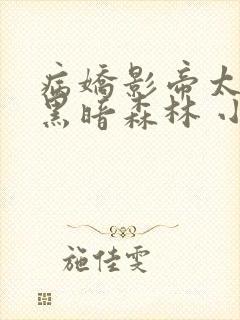 病嬌影帝太
黑暗森林 小
施佳雯